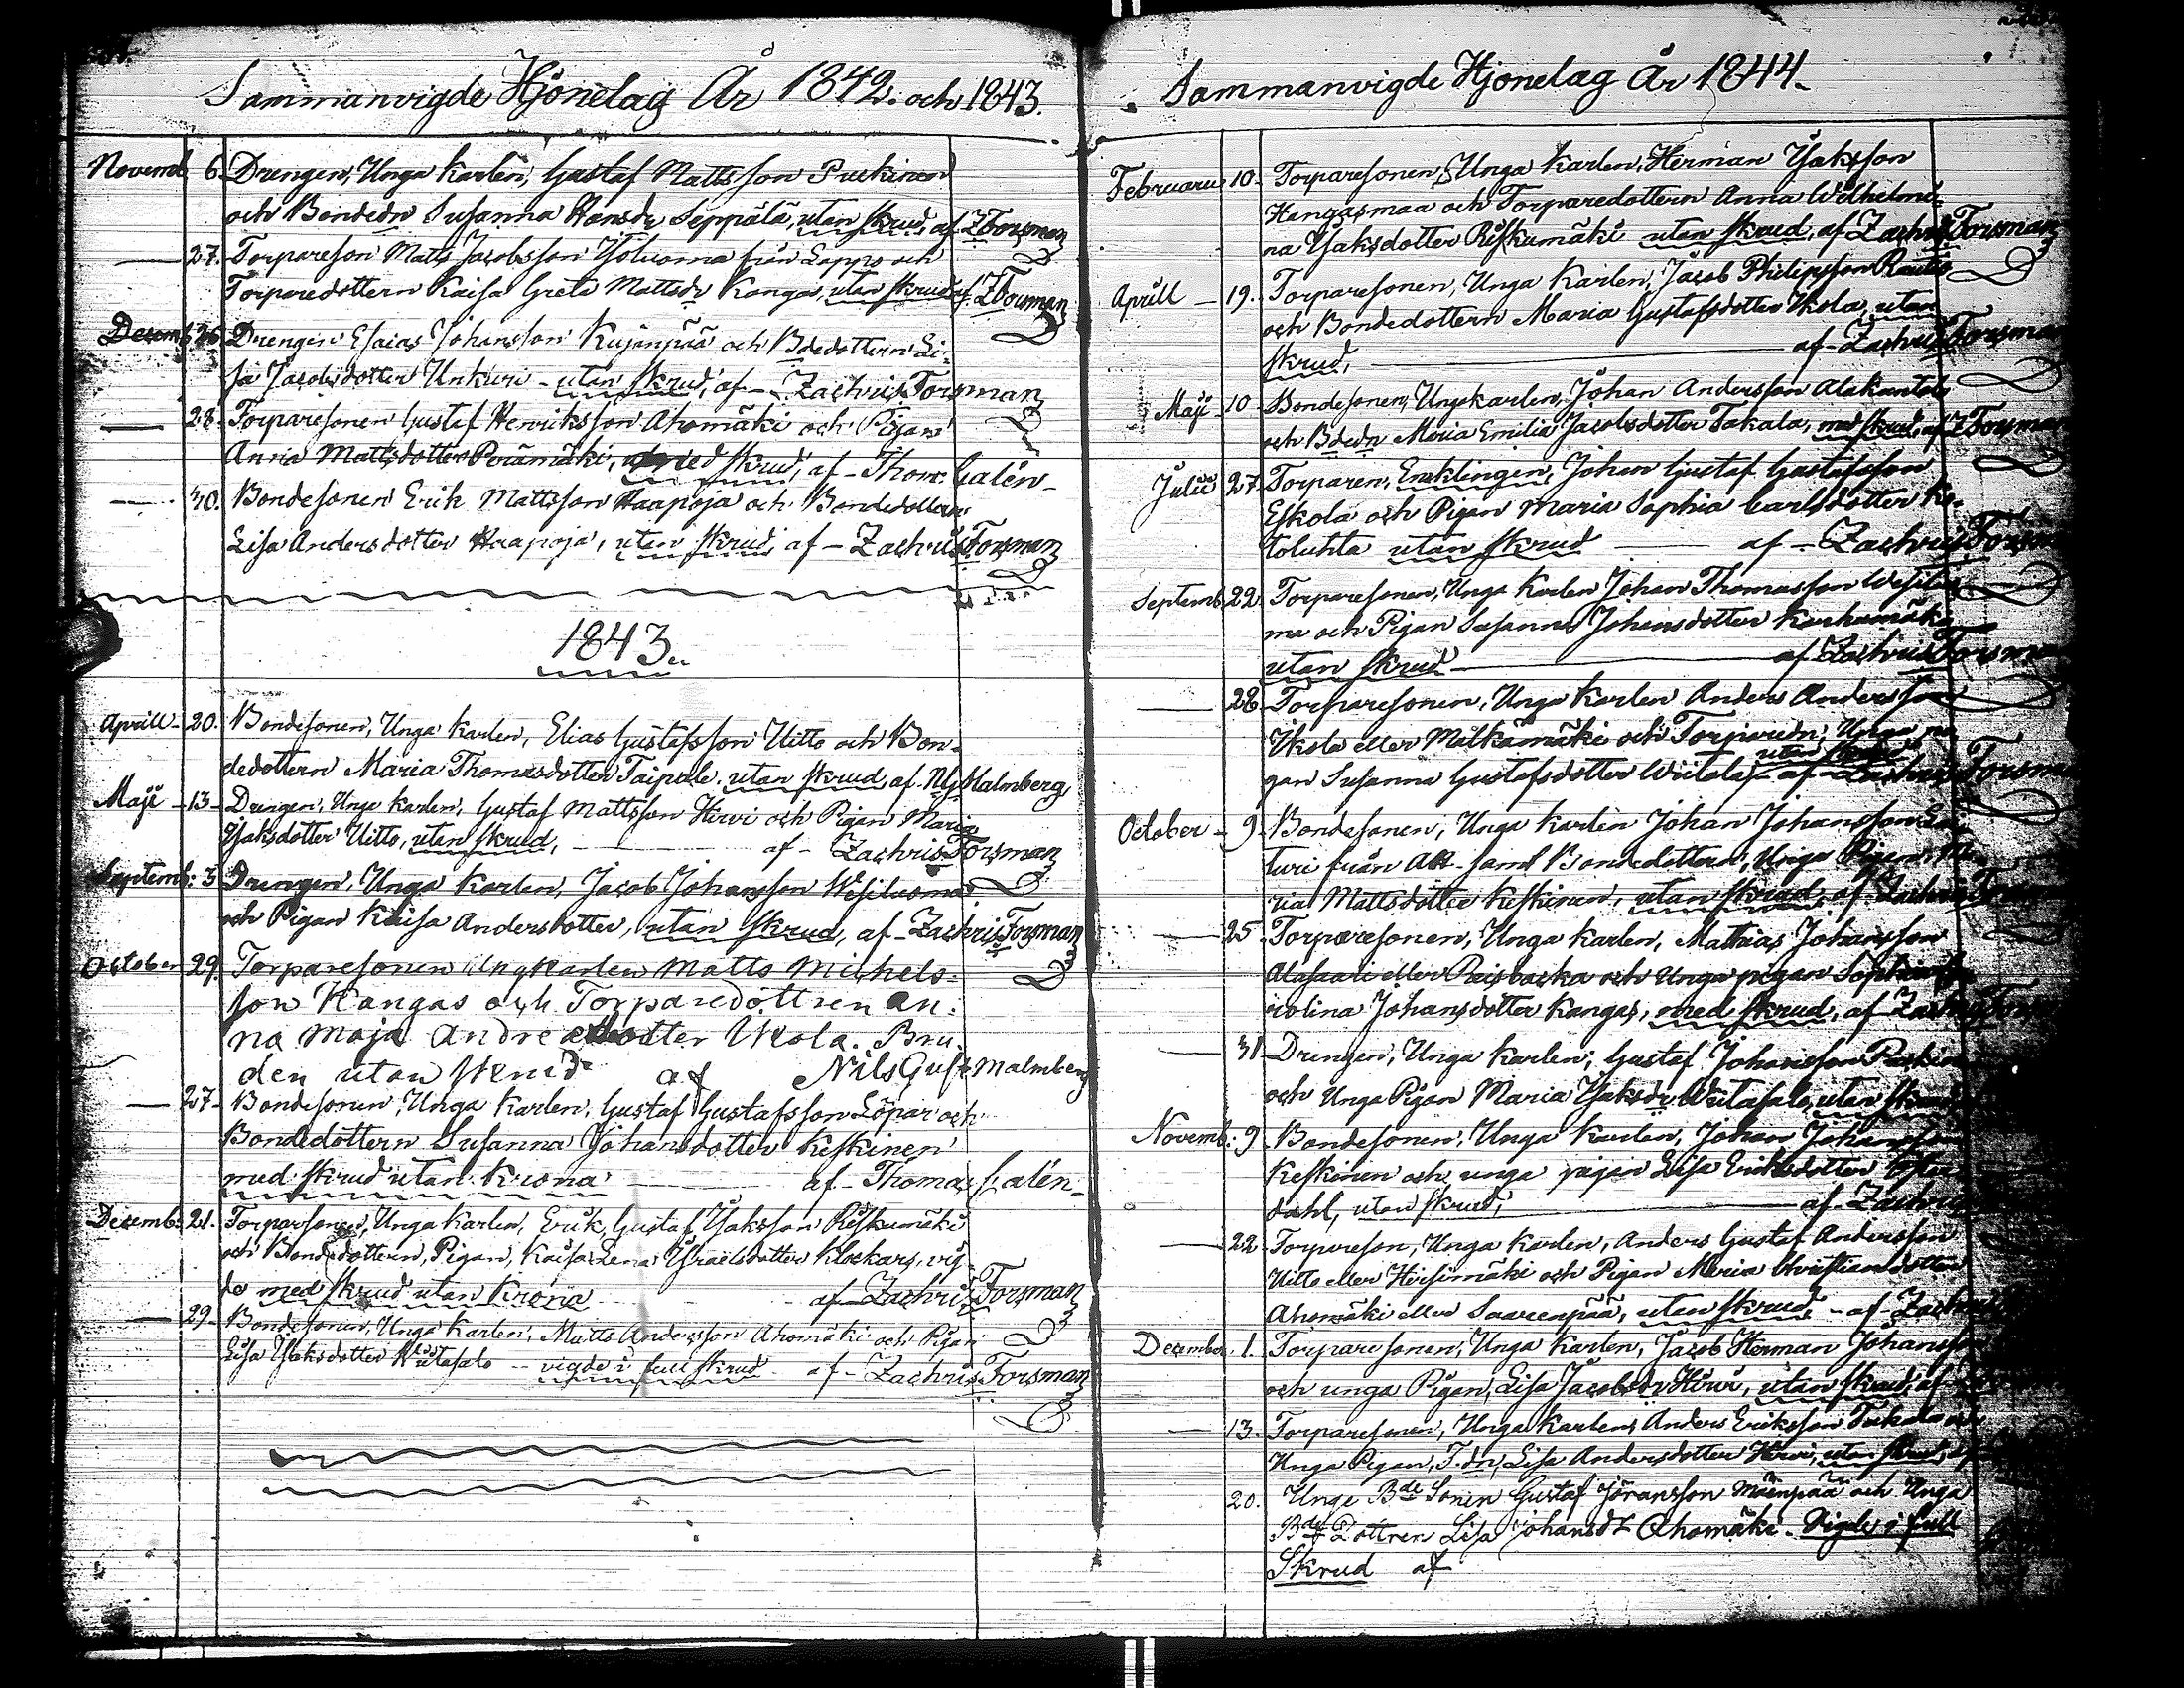 Sammanvigde Hjonelag År 1842. och 1843.
Novemb. 6. Drengen, Unga Karlen, Gustaf Mattsson Puskinen
och Bondedn Susanna Hansdr Seppälä, utan skrud, af ZForsman
— 27. Torpareson Matts Jacobsson Yliluoma från Lappo och
Torparedottern Kaisa Greta Mattsdr Kangas, utan skrud af ZForsman
Decemb. 26. Drengen Esaias Johansson Kujanpää och Bdedottern Li-
sa Jacobsdotter Unkuri - utan skrud, af - Zachris Forsman
— 28. Torparesonen Gustaf Henriksson Ahomäki och Pigan
Anna Mattsdotter Perämäki, med skrud, af - Thom. Calén -
— 30. Bondesonen Erik Mattsson Haapoja och Bondedottern
Lisa Andersdotter Haapoja, utan skrud, af - Zachris Forsman
1843.
Aprill - 20. Bondesonen, Unga Karlen, Elias Gustafsson Uitto och Bon-
dedottern Maria Thomasdotter Taipale, utan skrud, af NG Malmberg
Maji - 13 - Drengen, Unga Karlen, Gustaf Mattsson Hirvi och Pigan Maria
Isaksdotter Uitto, utan skrud, — af - Zachris Forsman
Septemb: 3 Drengen, Unga Karlen, Jacob Johansson Wesiluoma
och Pigan Kaisa Andersdotter, utan skrud, af - Zachris Forsman
October 29. Torparesonen Ungkarlen Matts Michels-
son Kangas och Torparedottren An:
na Maja Andre dotter Ikola. Bru-
den utan skrud af Nils Gust Malmberg
— 27 - Bondesonen, Unga Karlen, Gustaf Gustafsson Löpar och
Bondedottern Susanna Johansdotter Keskinen
med skrud utan krona — af - Thomas Calén -
Decemb: 21. Torparesonen, Unga Karlen, Erik Gustaf Isaksson Riskumäki
och Bondedottern, Pigan, Kaisa Lena Israelsdotter Klockars, vig-
de med skrud utan krona af Zachris Forsman
— 29 - Bondesonen, Unga Karlen, Matts Andersson Ahomäki och Pigan
Lisa Isaksdotter Wiitasalo - - vigde i full skrud af - Zachris Forsman
Sammanvigde Hjonelag År 1844.
Februarii 10 - Torparesonen, Unga Karlen, Herman Isaksson
Kangasmaa och Torparedottern Anna Wilhelmi-
na Isaksdotter Riskumäki utan skrud, af Zachris Forsman
Aprill - 19. Torparesonen, Unga Karlen, Jacob Philipsson
och Bondedottern Maria Gustafsdotter Ikola, utan
skrud, — af - Zachris Forsman
Maji - 10 - Bondesonen, Unga karlen, Johan Andersson Alakantola
och Bdedn Maria Emilia Jacobsdotter Takala, med skrud, af Z Forsman
Julii 27. Torparen, Enklingen, Johan Gustaf Gustafsson
Eskola och Pigan Maria Sophia Carlsdotter Ke-
toluhta utan skrud — af - Zachris Forsman
Septemb. 22. Torparesonen, Unga Karlen Johan Thomasson Wesiluo-
ma och Pigan Susanna Johansdotter Karhumäki
utan skrud — af Zachris Forsman
— 28 - Torparesonen, Unga Karlen Anders Andersson
Ikola eller Mälkämäki och Torparedn, Unga pi-
gan Susanna Gustafsdotter Wiitala, utan skrud - af - Zachris Forsman
October - 9 - Bondesonen, Unga Karlen Johan Johansson
turi från samt Bondedottern, Unga Pigan, Ma-
ria Mattsdotter Keskinen, utan skrud, af - Zachris Forsman
— 25. Torparesonen, Unga Karlen, Mathias Johansson
Alasaari eller och Unga pigan Sophia
Carolina Johansdotter Kangas, med skrud, af Zachris Forsman
— 31 - Drengen, Unga Karlen, Gustaf Johansson
och Unga Pigan Maria Isaksdr Wiitasalo, utan skrud
Novemb: 9 Bondesonen, Unga Karlen, Johan Johansson
Keskinen och unga pigan Lisa Eriksdotter
dahl, utan skrud, — af - Zachris
— 22 - Torpareson, Unga Karlen, Anders Gustaf Andersson
Uitto eller Hirsimäki och Pigan Maria Christiansdotter
Ahomäki eller Saarenpää, utan skrud, - af - Zachris
December. 1. Torparesonen, Unga Karlen, Jacob Herman Johansson
och unga Pigan, Lisa Jacobsdr Hirvi, utan skrud, af
— 13. Torparesonen, Unga Karlen, Anders Eriksson och
Unga Pigan, T.dn, Lisa Andersdotter Hirvi, utan skrud,
20. Unge Bde Sonen Gustaf Göransson Mäenpää och Unga
Bde Dottren Lisa Johansdr Ahomäki. Vigde i full
Skrud af